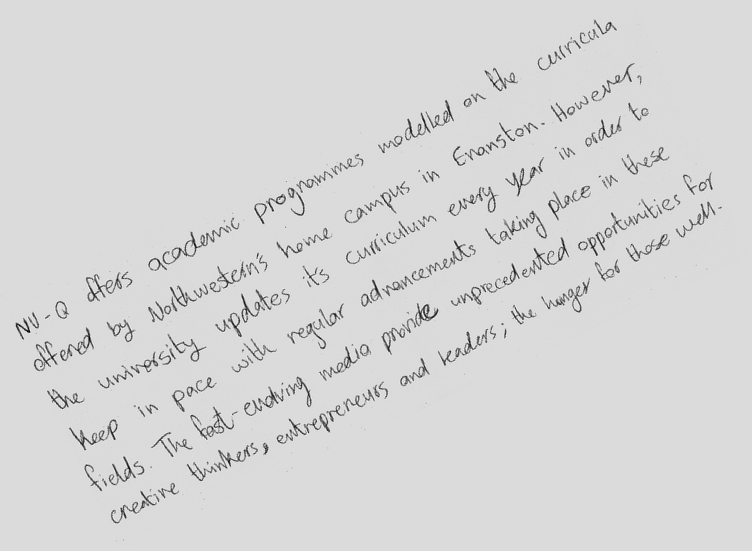 NU-Q offers academic programmes modelled on the curricula
offered by Northwestern's home campus in Evanston. However,
the university updates its curriculum every year in order to
keep in pace with regular advancements taking place in these
fields. The fast-evolving media provide unprecedented opportunities for
creative thinkers, entrepreneurs and leaders; the hunger for those well.